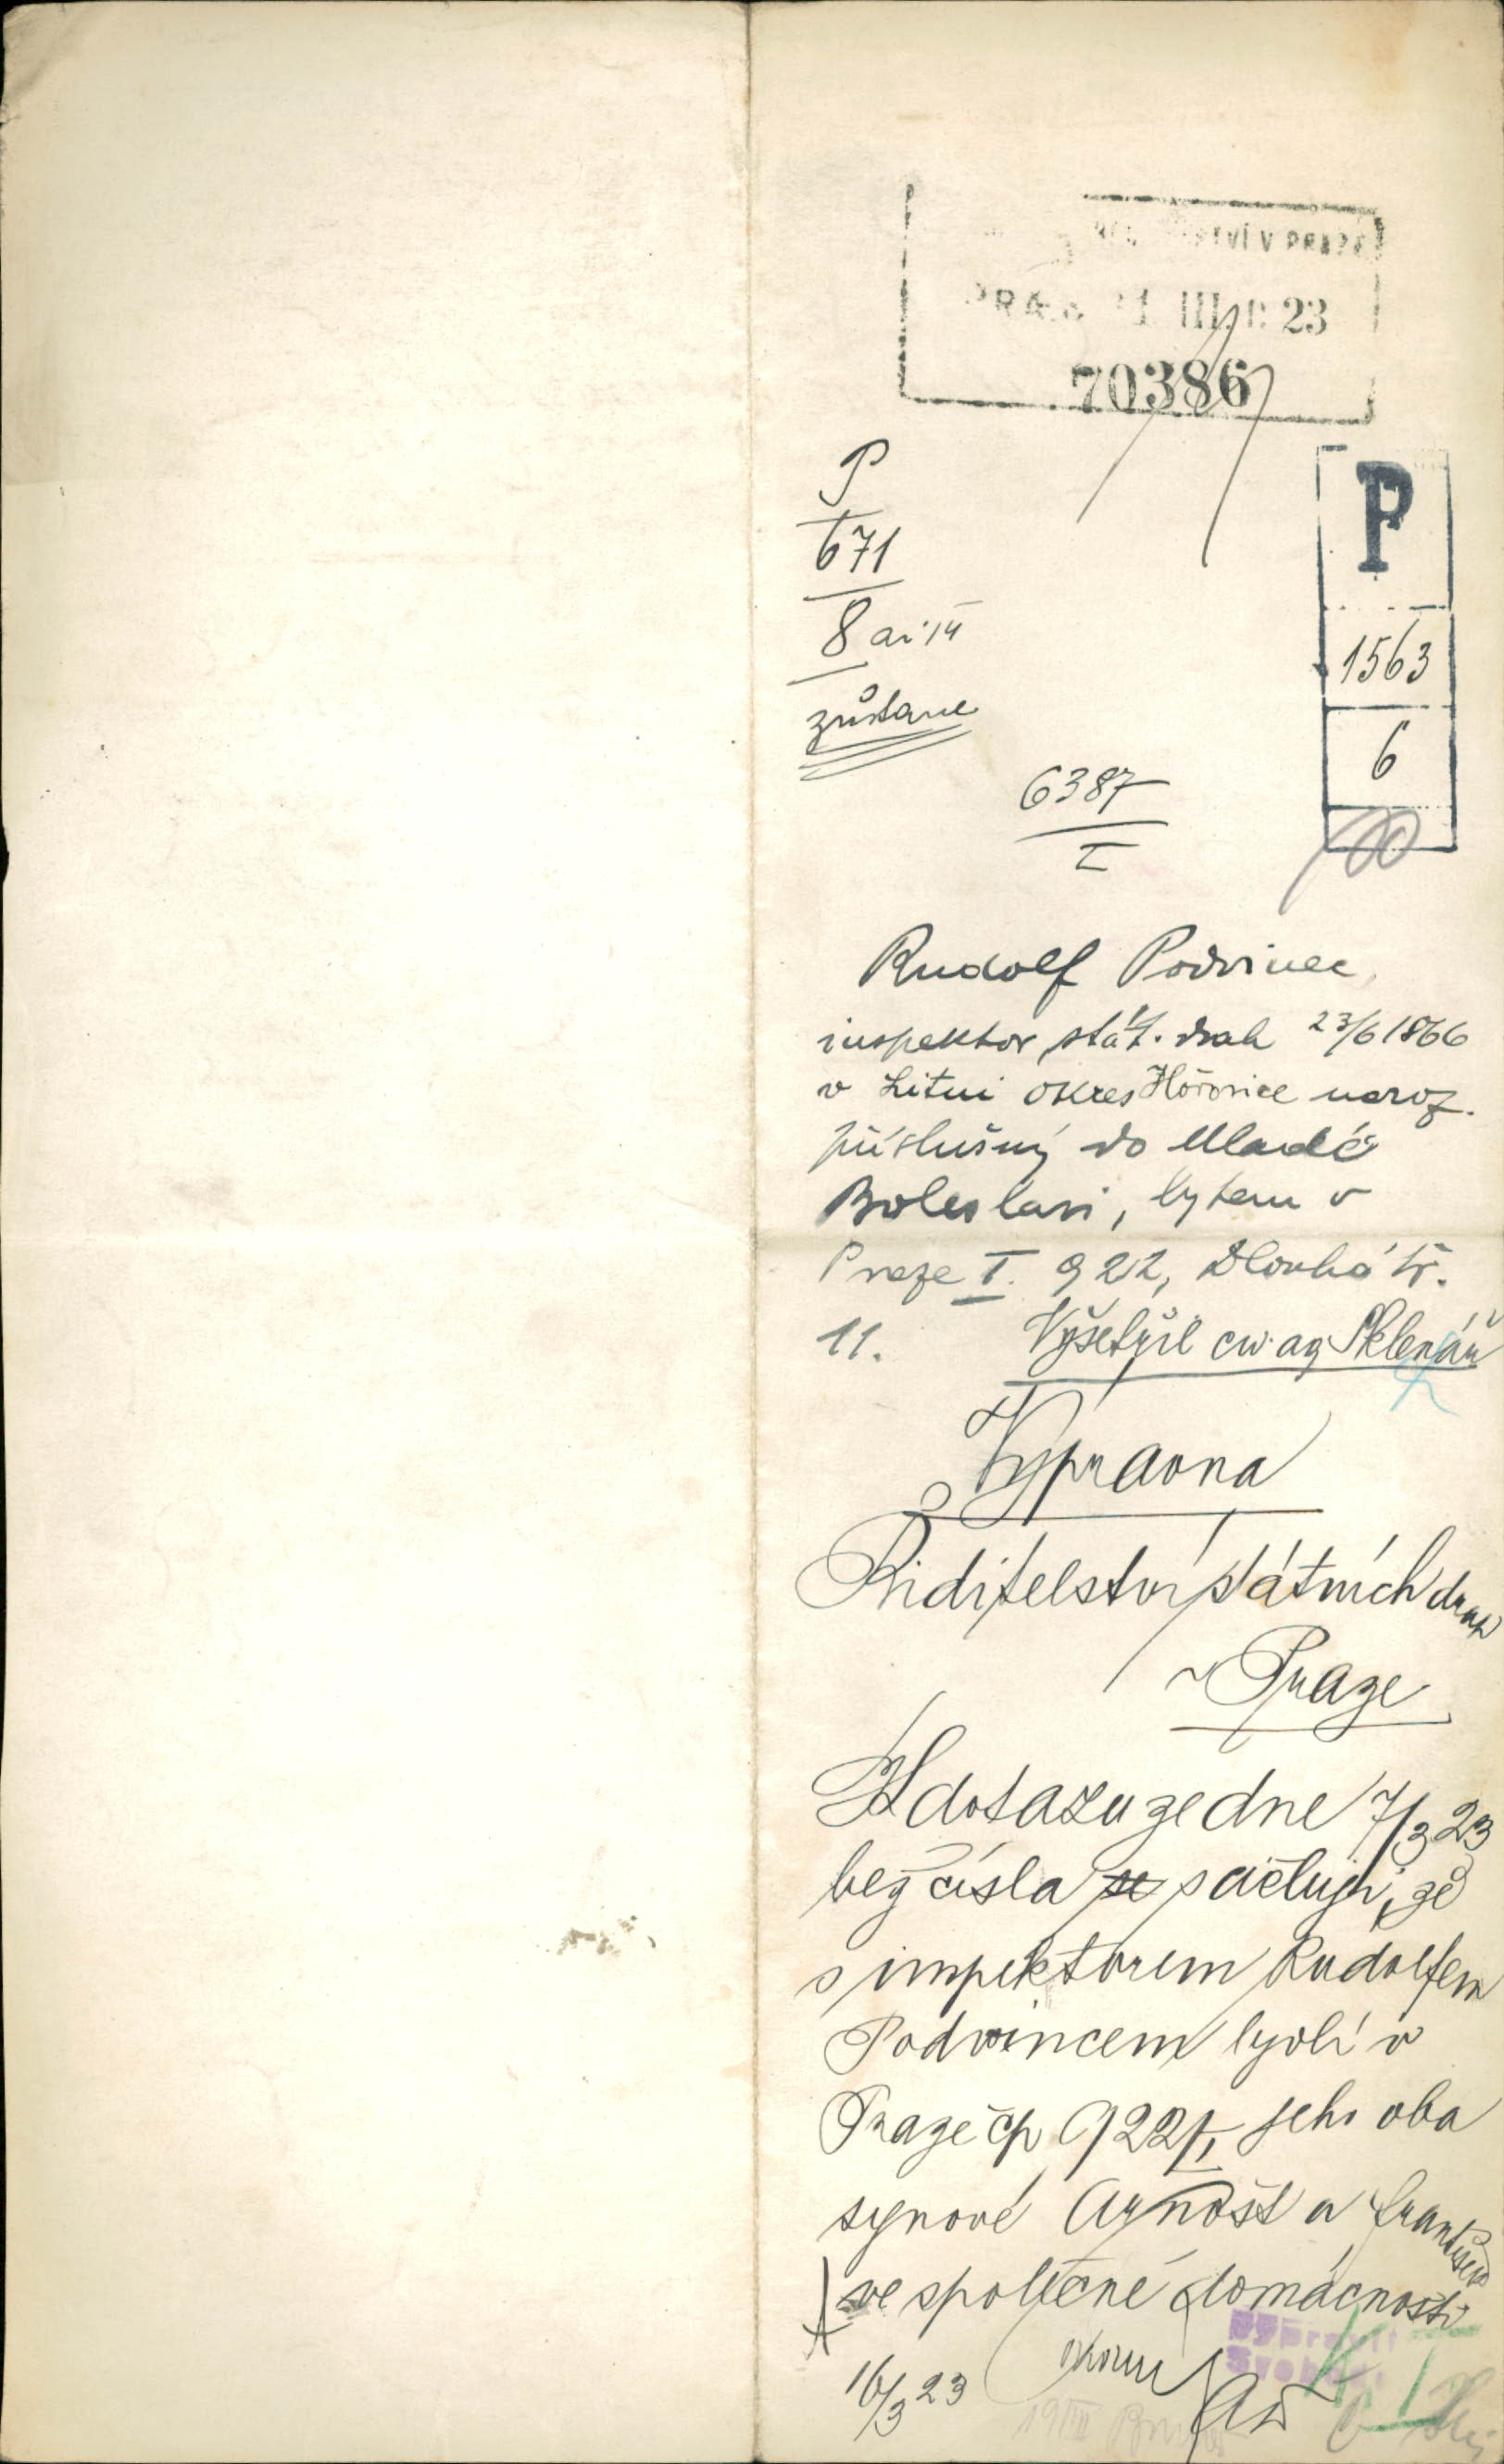 V PRAZE
PRAHA 1 III. 23
70386
P
671
8 ai 14
zůstane
P
1563
6
6387
I
Rudolf Podvinec,
inspektor stát. drah 23/6 1866
v Litni okres Hořovice naroz.
příslušný do Mladé
Boleslavi, bytem v
Praze I. 922, Dlouhá tř.
11. Vyšetřil civ. ag. Sklenář
Vypravna
Ředitelství státních drah
v Praze
K dotazu ze dne 7/3 23
bez čísla se sděluje, že
s inspektorem Rudolfem
Podvincem bydlí v
Praze čp 922/I, jeho oba
synové Arnošt a František
ve společné domácnosti
16/3 23
Vypravit
Svoboda